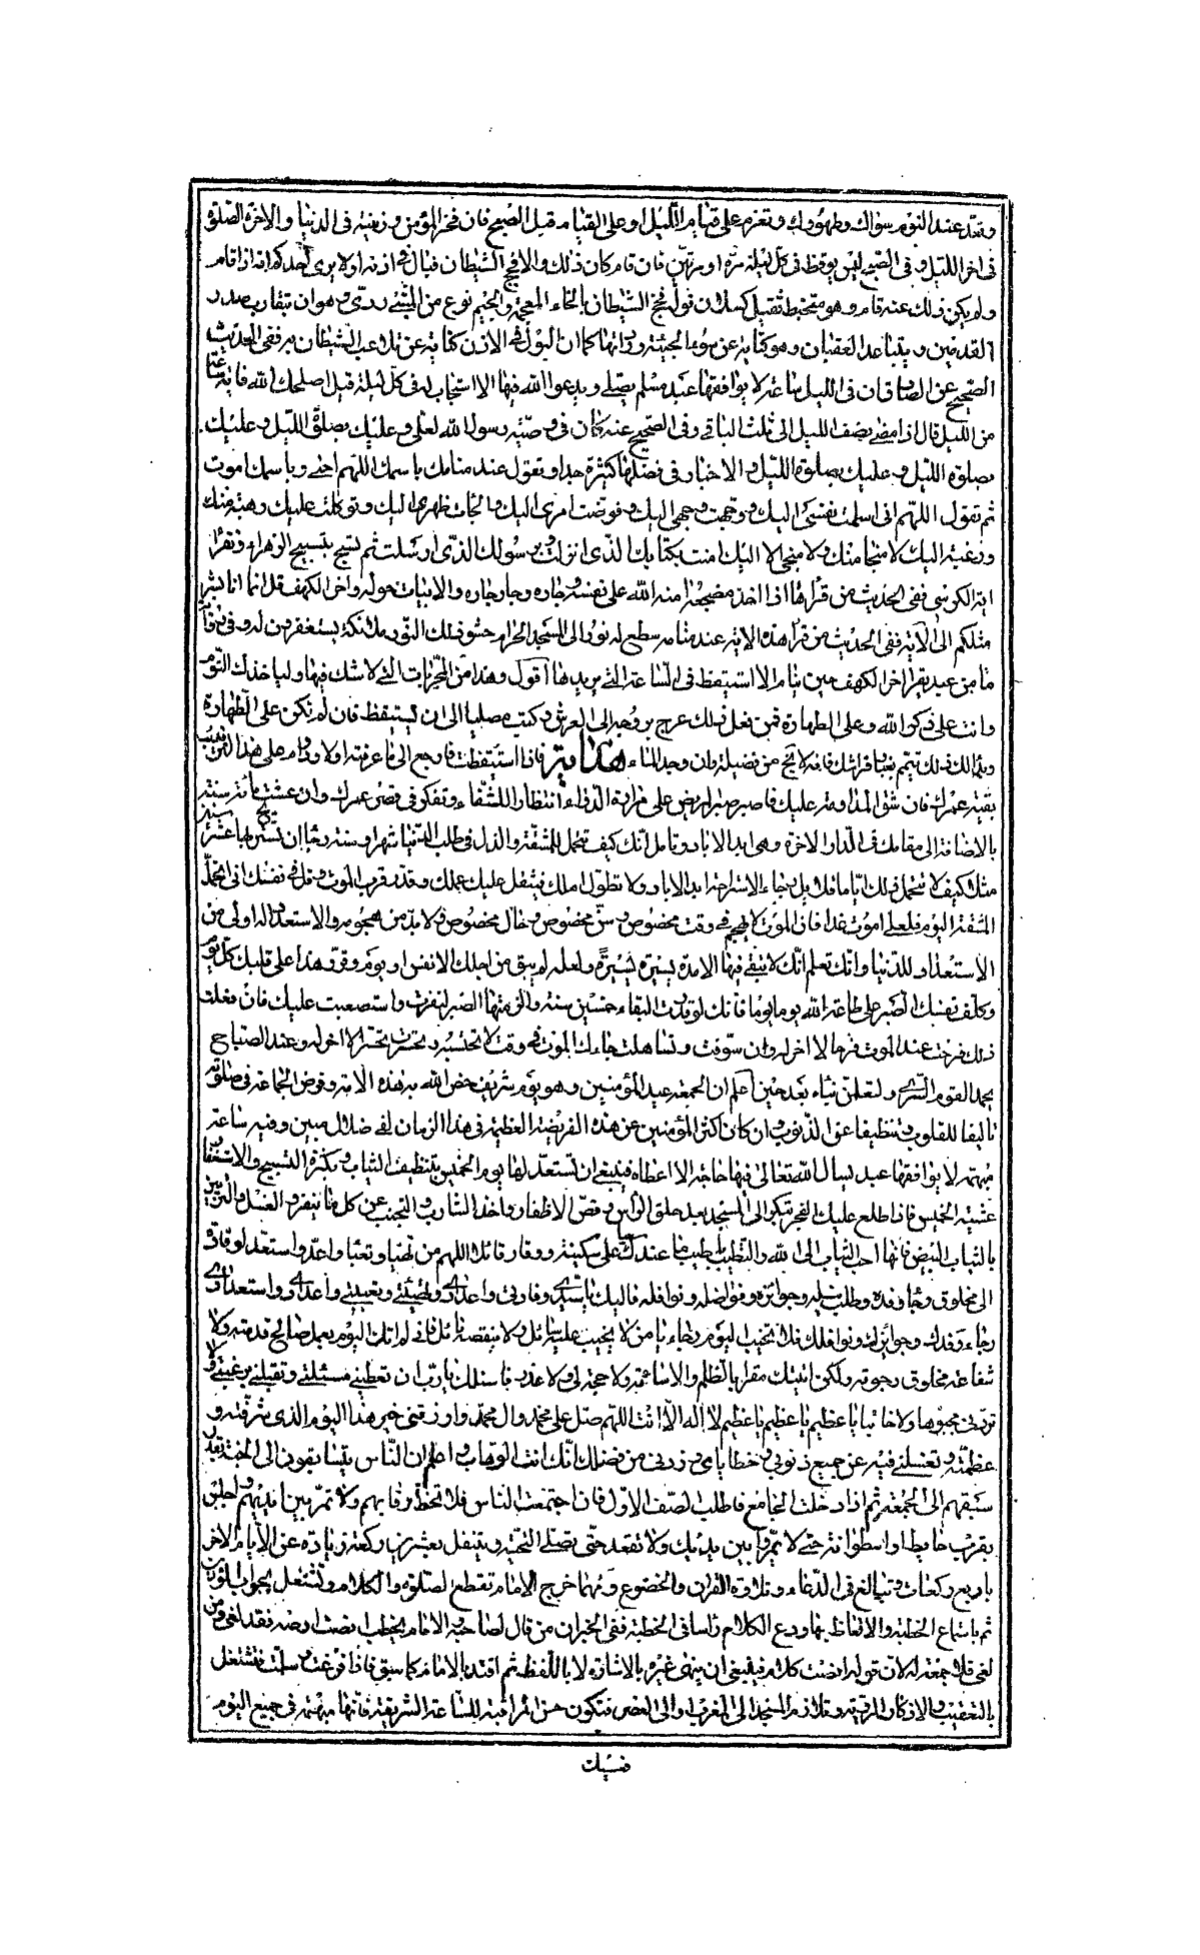 وتعد عند النوم سواك وطهورك وتعزم على قيام الليل او على القيام قبل الصبح فان فخر المؤمن وزينته فى الدنيا والاخرة الصلوة
فى اخر الليل وفى الصحيح ليس يوقظ فى كل ليلة مرة او مرتين فان قام كان ذلك والا فحج الشيطان فبال فى اذنه اولا يرى احدكم انه اذا قام
ولم يكن ذلك عنه قام وهو متخبط ثقيل كسلان قوله فحج الشيطان بالحاء المعجمة والجيم نوع من المشى ردى وهو ان تتقارب صدر
القدمين ويتباعد العقبان وهو كناية عن سوء الجيئة كما ان البول فى الاذن كناية عن تلاعب الشيطان به وفى الحديث
الصحيح عن الصادق ان فى الليل ساعة لا يوافقها عبد مسلم يصلى ويدعوا الله فيها الا استجاب له فى كل ليلة قيل اصلحك الله فاية ساعة
من الليل قال اذا مضى نصف الليل الى ثلث الباقى وفى الصحيح عنه كان فى وصية رسول الله لعلى وعليك بصلوة الليل وعليك
بصلوة الليل وعليك بصلوة الليل والاخبار فى فضلها كثيرة جدا وتقول عند منامك باسمك اللهم احيى وباسمك اموت
ثم تقول اللهم انى اسلمت نفسى اليك ووجهت وجهى اليك وفوضت امرى اليك والجات ظهرى اليك وتوكلت عليك رهبة منك
ورغبة اليك لا منجا منك ولا منجى الا اليك امنت بكتابك الذى انزلت وبرسولك الذى ارسلت ثم تسبح بتسبيح الزهراء وتقرا
اية الكرسى ففى الحديث من قراها اذا اخذ مضجعه امنه الله على نفسه وجاره وجار جاره والابيات حوله واخر الكهف قل انما انا بشر
مثلكم الى الاية ففى الحديث من قرا هذه الاية عند منامه سطع له نور الى المسجد الحرام حشو ذلك النور ملائكة يستغفرون له وفى
ما من عبد يقرا اخر الكهف حين ينام الا استيقظ فى الساعة التى يريدها اقول وهذا من المجربات التى لا شك فيها وليأخذك النوم
وانت على ذكر الله وعلى الطهارة فمن فعل ذلك عرج بروحه الى العرش وكتب مصليا الى ان يستيقظ فان لم تكن على الطهارة
تتيمم بغبار فراشك فانه لا يخ من فضيلة وان وجد الماء هداية فاذا استيقظت فارجع الى ما عرفته اولا ودام على هذا الترتيب
بقية عمرك فان شق المداومة عليك فاصبر صبر المريض على مرارة الدواء انتظارا للشفاء وتفكر فى قصر عمرك وان عشت مائة سنة
بالاضافة الى مقامك فى الدار الاخرة وهى ابد الاباد وتامل انك كيف تحمل المشقة والذل فى طلب الدنيا شهرا وسنة رجاء ان تستريح بها عشر سنين
مثلا كيف لا تتحمل ذلك اياما قلايل رجاء الاستراحة ابد الاباد ولا تطول املك فيثقل عليك عملك وقدر قرب الموت وقل فى نفسك انى اتحمل
المشقة اليوم فلعلى اموت غدا فان الموت لا يهجم فى وقت مخصوص وسن مخصوص وحال مخصوص ولا بد من هجومه والاستعداد له اولى من
الاستعداد للدنيا وانت تعلم انك لا تبقى فيها الا مدة يسيرة ولعله لم يبق من اجلك الا نفس او يوم وقدر هذا على قلبك كل يوم
وكلف نفسك الصبر على طاعة الله يوما يوما فانك لو قدرت البقاء خمسين سنة والزمتها الصبر لنفرت واستصعبت عليك فان فعلت
ذلك فرحت عند الموت فرحا لا اخر له وان سوفت وتساهلت جاءك الموت فى وقت لا تحتسبه وتحسرت تحسرا لا اخر له وعند الصباح
يحمد القوم السرى ولتعلمن نباه بعد حين اعلم ان الجمعة عيد المؤمنين وهو يوم شريف خص الله به هذه الامة وفرض الجماعة فى صلوته
تاليفا للقلوب وتنظيفا عن الذنوب وان كان اكثر المؤمنين عن هذه الفريضة العظيمة فى هذا الزمان لفى ضلال مبين وفيه ساعة
مبهمة لا يوافقها عبد يسال الله تعالى فيها حاجة الا اعطاه فينبغى ان تستعد لها يوم الخميس بتنظيف الثياب وبكثرة التسبيح والاستغفار
عشية الخميس فاذا طلع عليك الفجر تبكر الى المسجد بعد حلق الراس وقص الاظفار واخذ الشارب والتجنب عن كل ما ينفر والغسل والتزيين
بالثياب البيض فانها احب الثياب الى الله والتطيب باطيب ما عندك على سكينة ووقار قائلا اللهم من تهيا وتعبا واعد واستعد لوفادة
الى مخلوق رجاء رفده وطلب نيله وجوائزه وفواضله ونوافله فاليك يا سيدى وفادتى واعدادى وتهيئتى وتعبيتى واعدادى واستعدادى
رجاء رفدك وجوائزك ونوافلك فلا تخيب اليوم رجائى يا من لا يخيب عليه سائل ولا ينقصه نائل فانى لم اتك اليوم بعمل صالح قدمته ولا
شفاعة مخلوق رجوته ولكن اتيتك مقرا بالظلم والاساءة ولا حجة لى ولا عذر فاسئلك يا رب ان تعطينى مسئلتى وتقبلنى برغبتى ولا
تردنى مجبوها ولا خائبا يا عظيم يا عظيم يا عظيم لا اله الا انت اللهم صل على محمد وال محمد وارزقنى خير هذا اليوم الذى شرفته و
عظمته وتغسلنى فيه عن جميع ذنوبى وخطاياى وزدنى من فضلك انك انت الوهاب واعلم ان الناس يتسابقون الى الجنة بقدر
سبقهم الى الجمعة ثم اذا دخلت الجامع فاطلب الصف الاول فان اجتمعت الناس فلا تخط رقابهم ولا تمر بين ايديهم واجلس
بقرب حايط او اسطوانة حتى لا يمروا بين يديك ولا تقعد حتى تصلى التحية ويتنفل بعشرين ركعة زيادة عن الايام الاخر
باربع ركعات وتبالغ فى الدعاء وتلاوة القران والخضوع ومهما خرج الامام تقطع الصلوة والكلام وتشتغل بجواب المؤذن
ثم باستماع الخطبة والاتعاظ بها ودع الكلام راسا فى الخطبة ففى الخبر ان من قال لصاحبه والامام يخطب انصت او صه فقد لغى ومن
لغى فلا جمعة له لان قوله انصت كلام فينبغى ان ينهى غيره بالاشارة لا باللفظ ثم اقتد بالامام كما سبق فاذا فرغت وسلمت فتشتغل
بالتعقيب والاذكار المروية وتلازم المسجد الى المغرب او الى العصر فتكون حسن المراقبة للساعة الشريفة فانها مبهمة فى جميع اليوم
فسيك